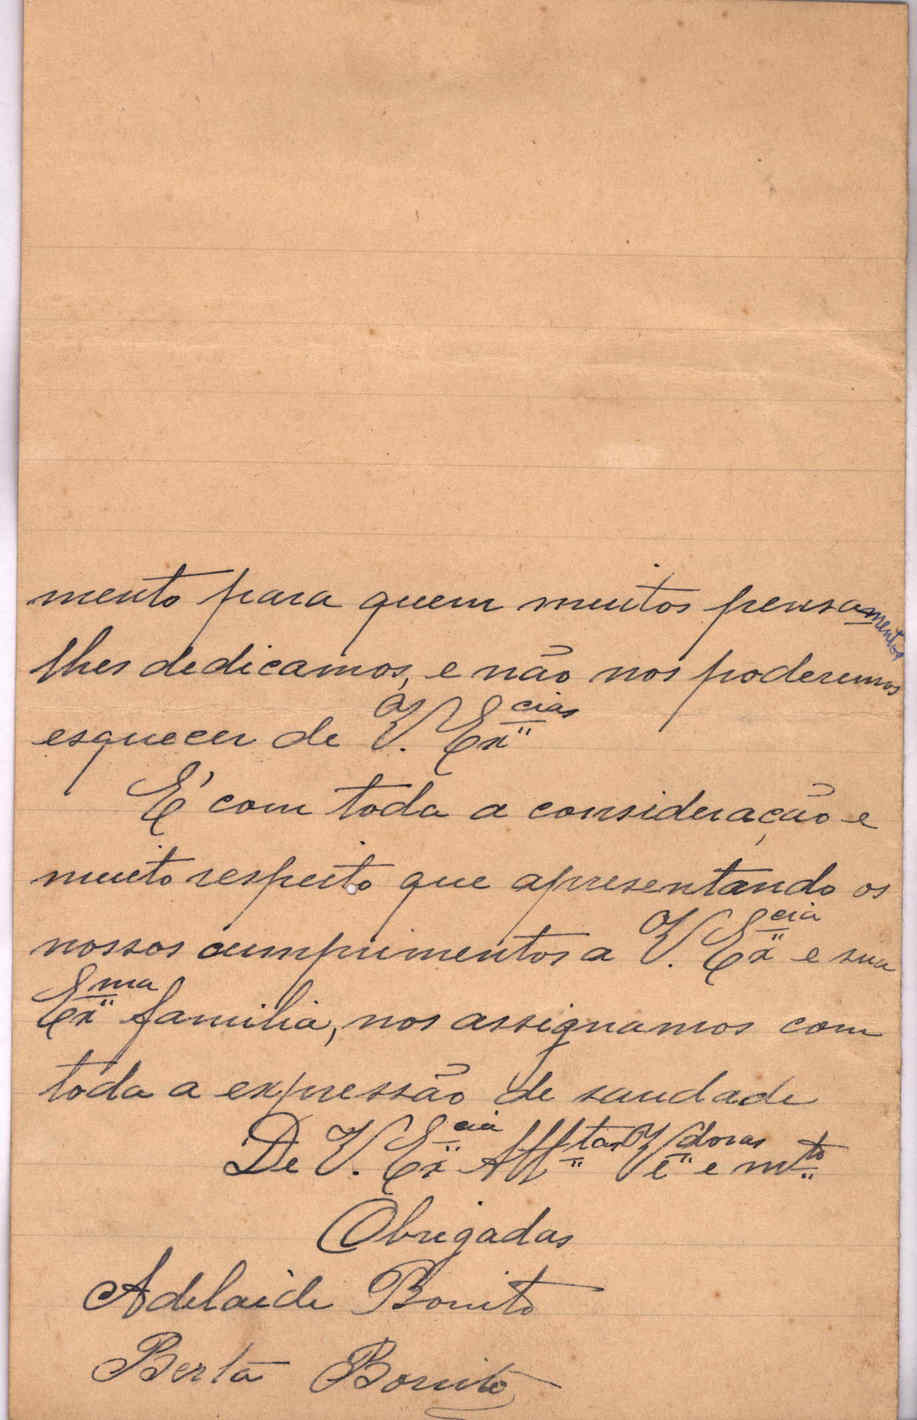 mento para quem muitos pensamentos
lhes dedicamos, e não nos poderemos
esquecer de V. Ex.cias
É com toda a consideração e
muito respeito que apresentando os
nossos cumprimentos a V. Ex.cia e sua
Ex.ma familia, nos assignamos com
toda a expressão de saudade
De V. Ex.cia Aff.tas V.e.doras e m.to
Obrigadas
Adelaide Bonito
Berta Bonito